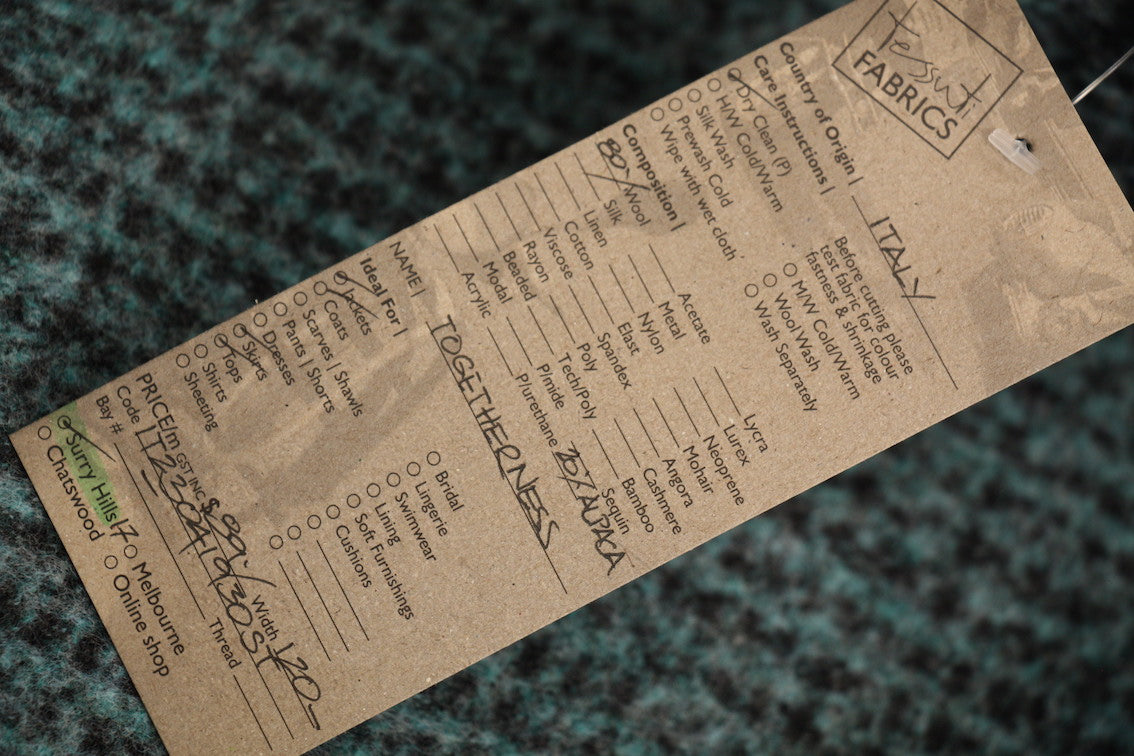 Tessuti
FABRICS
Country of Origin | ITALY
Care Instructions |
Dry Clean (P)
H/W Cold/Warm
Silk Wash
Prewash Cold
Wipe with wet cloth
Before cutting please
test fabric for colour
fastness & shrinkage
M/W Cold/Warm
Wool Wash
Wash Separately
Composition |
80% Wool
Silk
Linen
Cotton
Viscose
Rayon
Beaded
Modal
Acrylic
Acetate
Metal
Nylon
Elast
Spandex
Poly
Tech/Poly
P/mide
P/urethane
Lycra
Lurex
Neoprene
Mohair
Angora
Cashmere
Bamboo
Sequin
20% ALPACA
NAME | TOGETHERNESS
Ideal For |
Jackets
Coats
Scarves | Shawls
Pants | Shorts
Dresses
Skirts
Tops
Shirts
Sheeting
Bridal
Lingerie
Swimwear
Lining
Soft Furnishings
Cushions
PRICE/m GST INC $99.- Width 120
Code
Bay # Thread
Surry Hills 17
Chatswood
Melbourne
Online shop